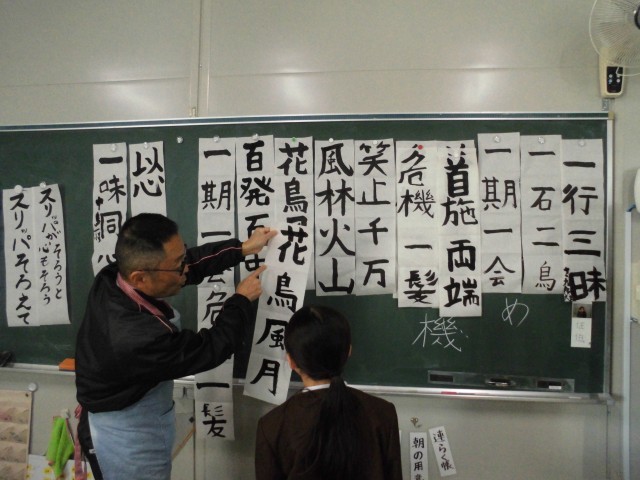 一行三昧
一石二鳥
一期一会
首施両端
危機一髪
笑止千万
風林火山
花鳥
花鳥風月
百発百
一期一会
危
一髪
以心
一味
スリッパがそろうと
心もそろう
スリッパそろえて
め
機
連らく帳
朝の用